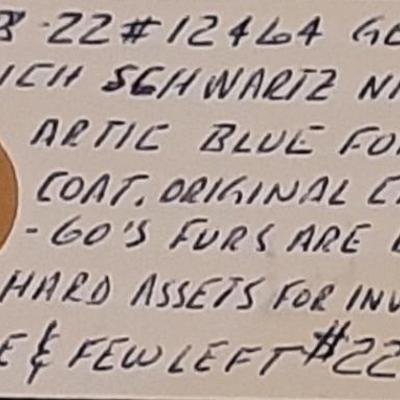 8-22#12464 GE
ICH SCHWARTZ NI
ARTIC BLUE FO
COAT. ORIGINAL C
-60'S FURS ARE
HARD ASSETS FOR INV
E & FEW LEFT $22